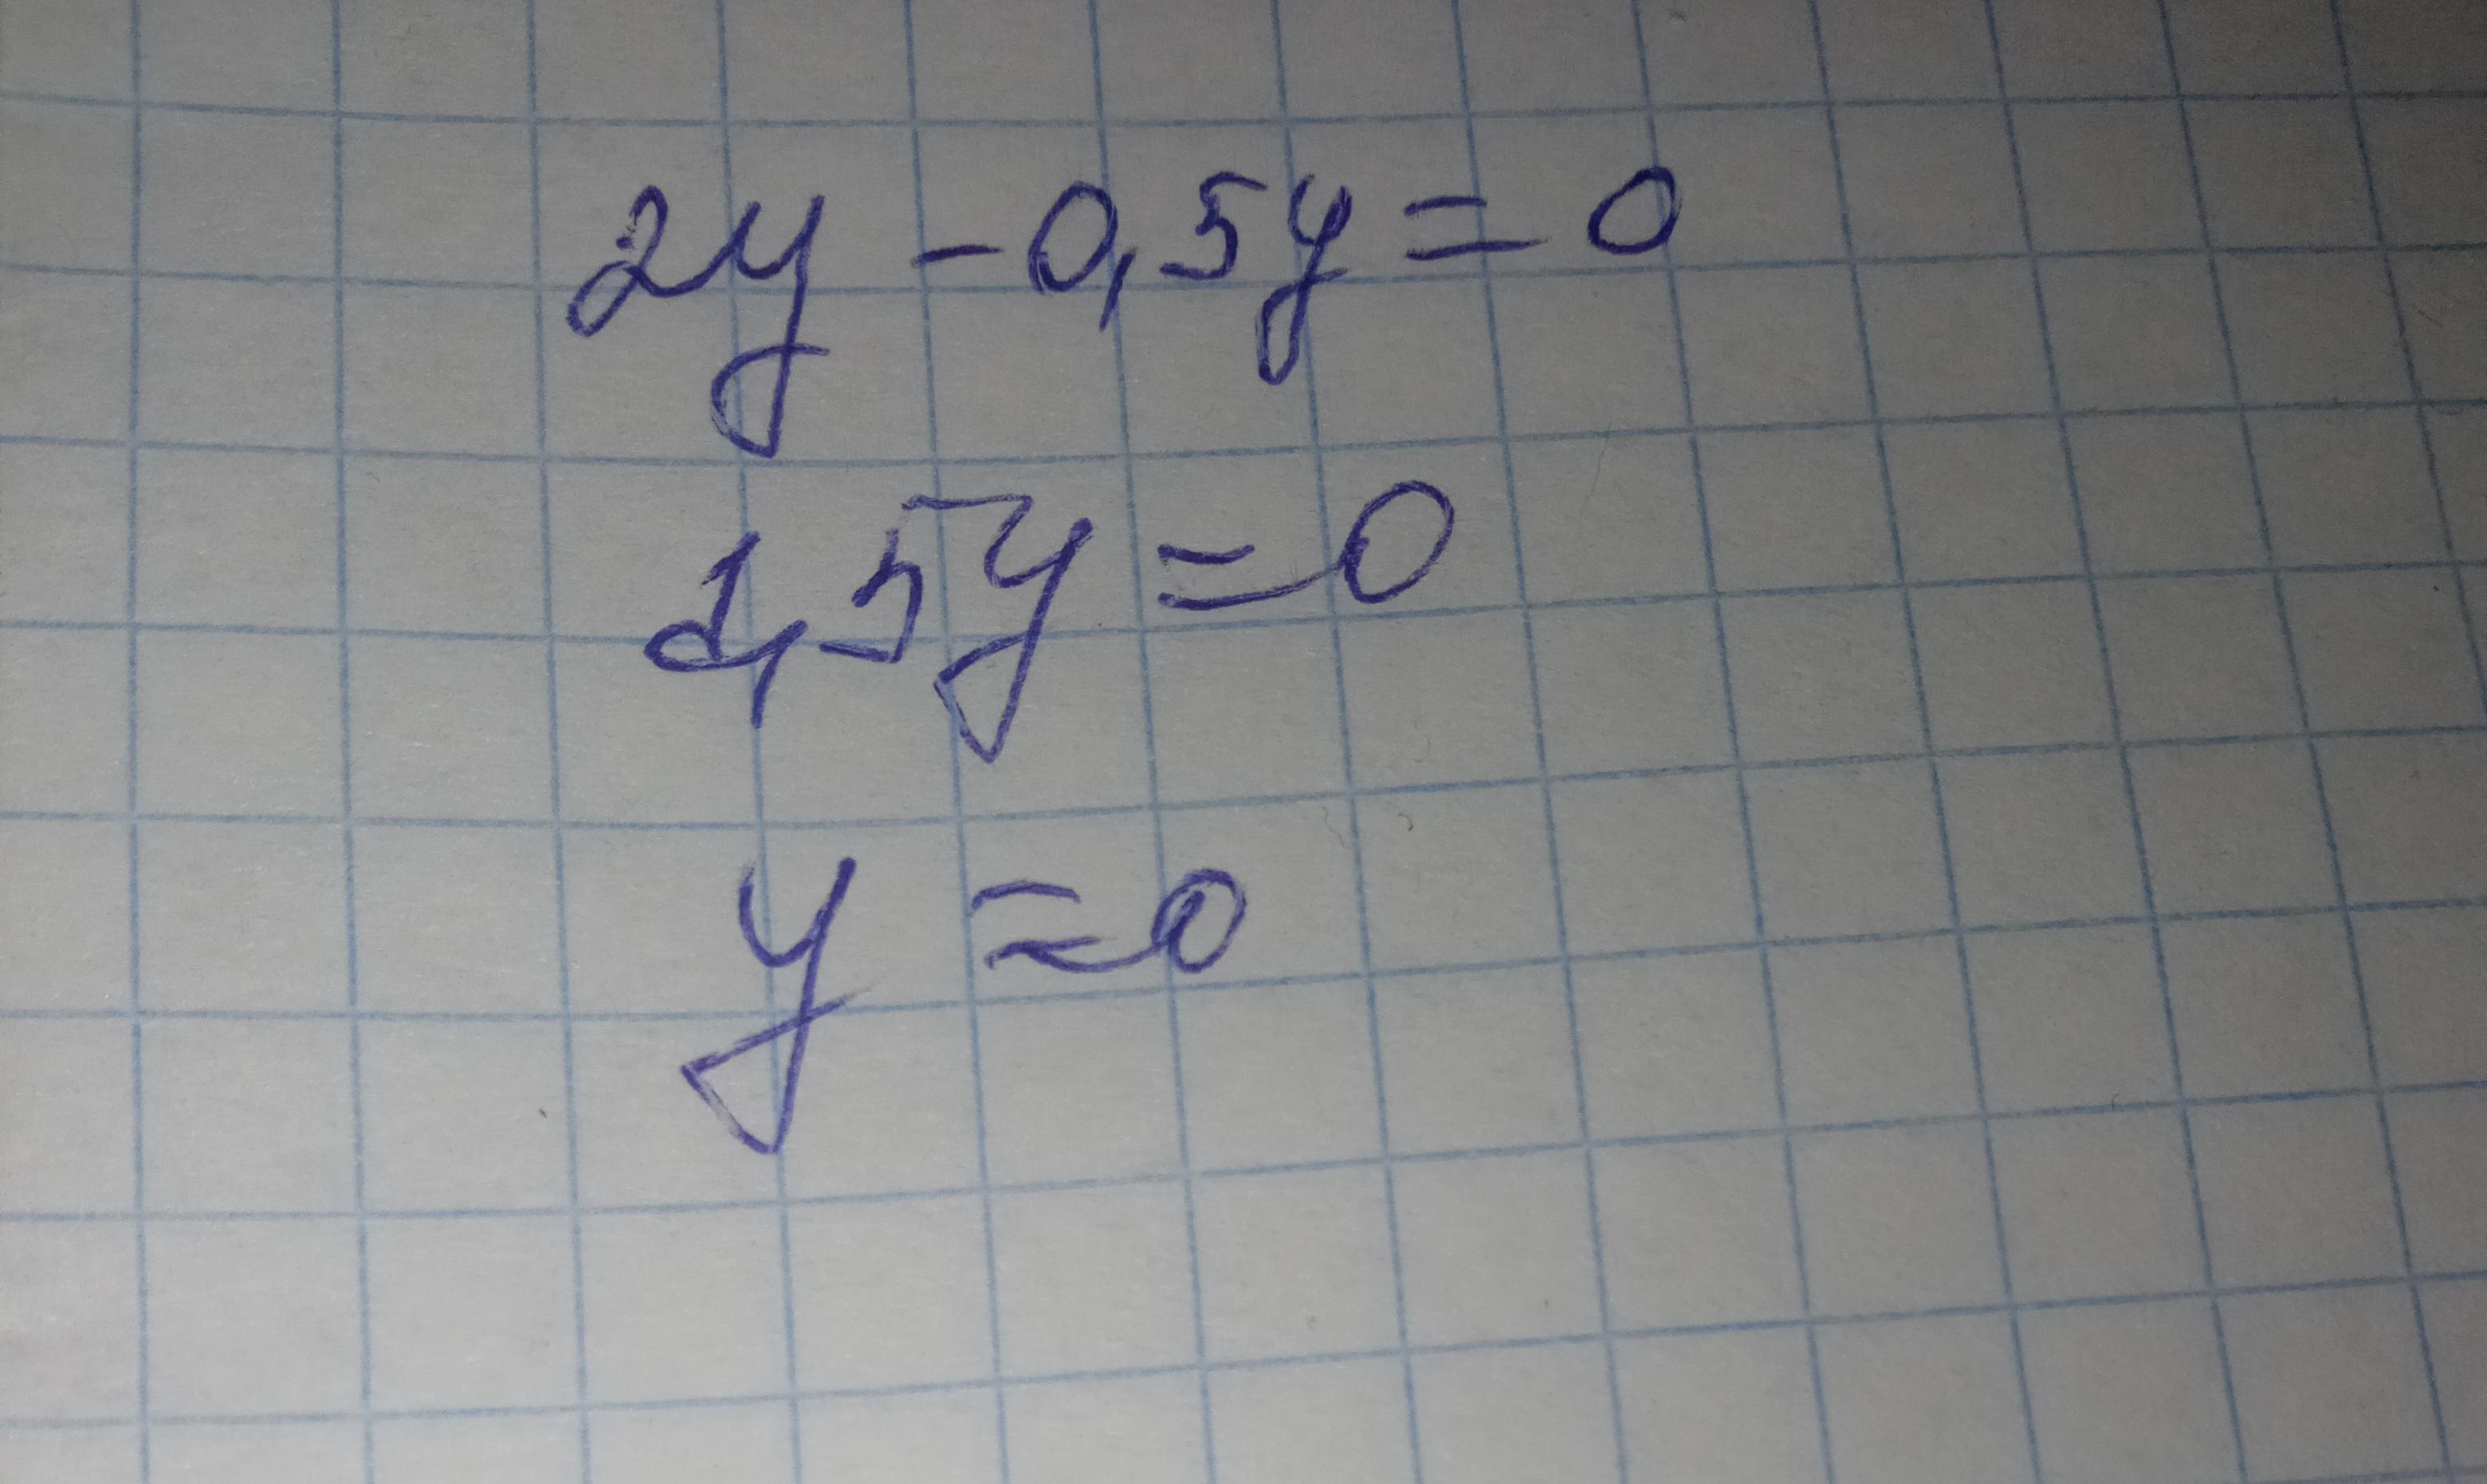 2y - 0,5y = 0
1,5y = 0
y = 0